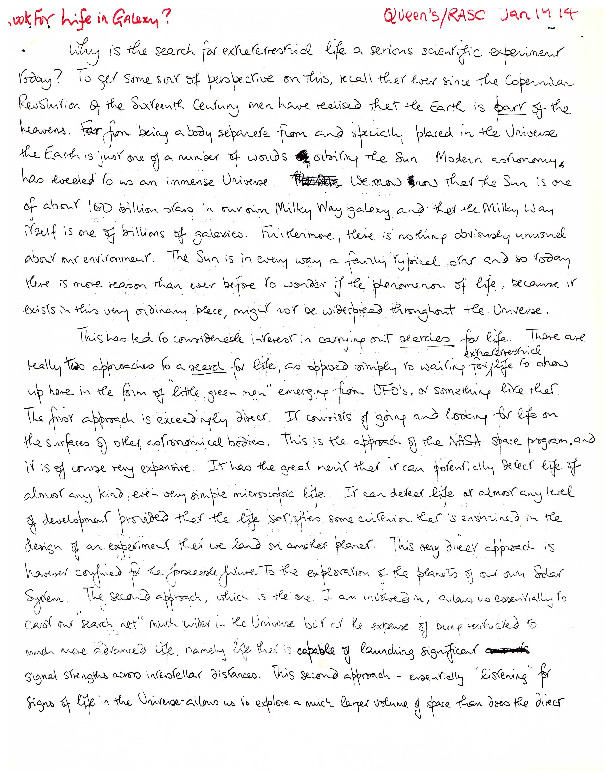 Look for Life in Galaxy? Queen's/RASC Jan 19 74
Why is the search for extraterrestrial life a serious scientific experiment
today? To get some sort of perspective on this, recall that ever since the Copernican
Revolution of the Sixteenth Century men have realised that the Earth is part of the
heavens. Far from being a body separate from and specially placed in the Universe
the Earth is just one of a number of worlds orbiting the Sun. Modern astronomy
has revealed to us an immense Universe. We now know that the Sun is one
of about 100 billion stars in our own Milky Way galaxy and that the Milky Way
itself is one of billions of galaxies. Furthermore, there is nothing obviously unusual
about our environment. The Sun is in every way a fairly typical star and so today
there is more reason than ever before to wonder if the phenomenon of life, because it
exists in this very ordinary place, might not be widespread throughout the Universe.
This has led to considerable interest in carrying out searches for life. There are
really two approaches to a search for life, as opposed simply to waiting for extraterrestrial life to show
up here in the form of "little green men" emerging from UFO's, or something like that.
The first approach is exceedingly direct. It consists of going and looking for life on
the surfaces of other astronomical bodies. This is the approach of the NASA space program, and
it is of course very expensive. It has the great merit that it can potentially detect life of
almost any kind, even very simple microscopic life. It can detect life at almost any level
of development provided that the life satisfies some criterion that is enshrined in the
design of an experiment that we land on another planet. This very direct approach is
however confined for the foreseeable future to the exploration of the planets of our own Solar
System. The second approach, which is the one I am interested in, allows us essentially to
cast our "search net" much wider in the Universe but at the expense of being restricted to
much more advanced life, namely life that is capable of launching significant
signal strengths across interstellar distances. This second approach - essentially "listening" for
signs of life in the Universe allows us to explore a much larger volume of space than does the direct